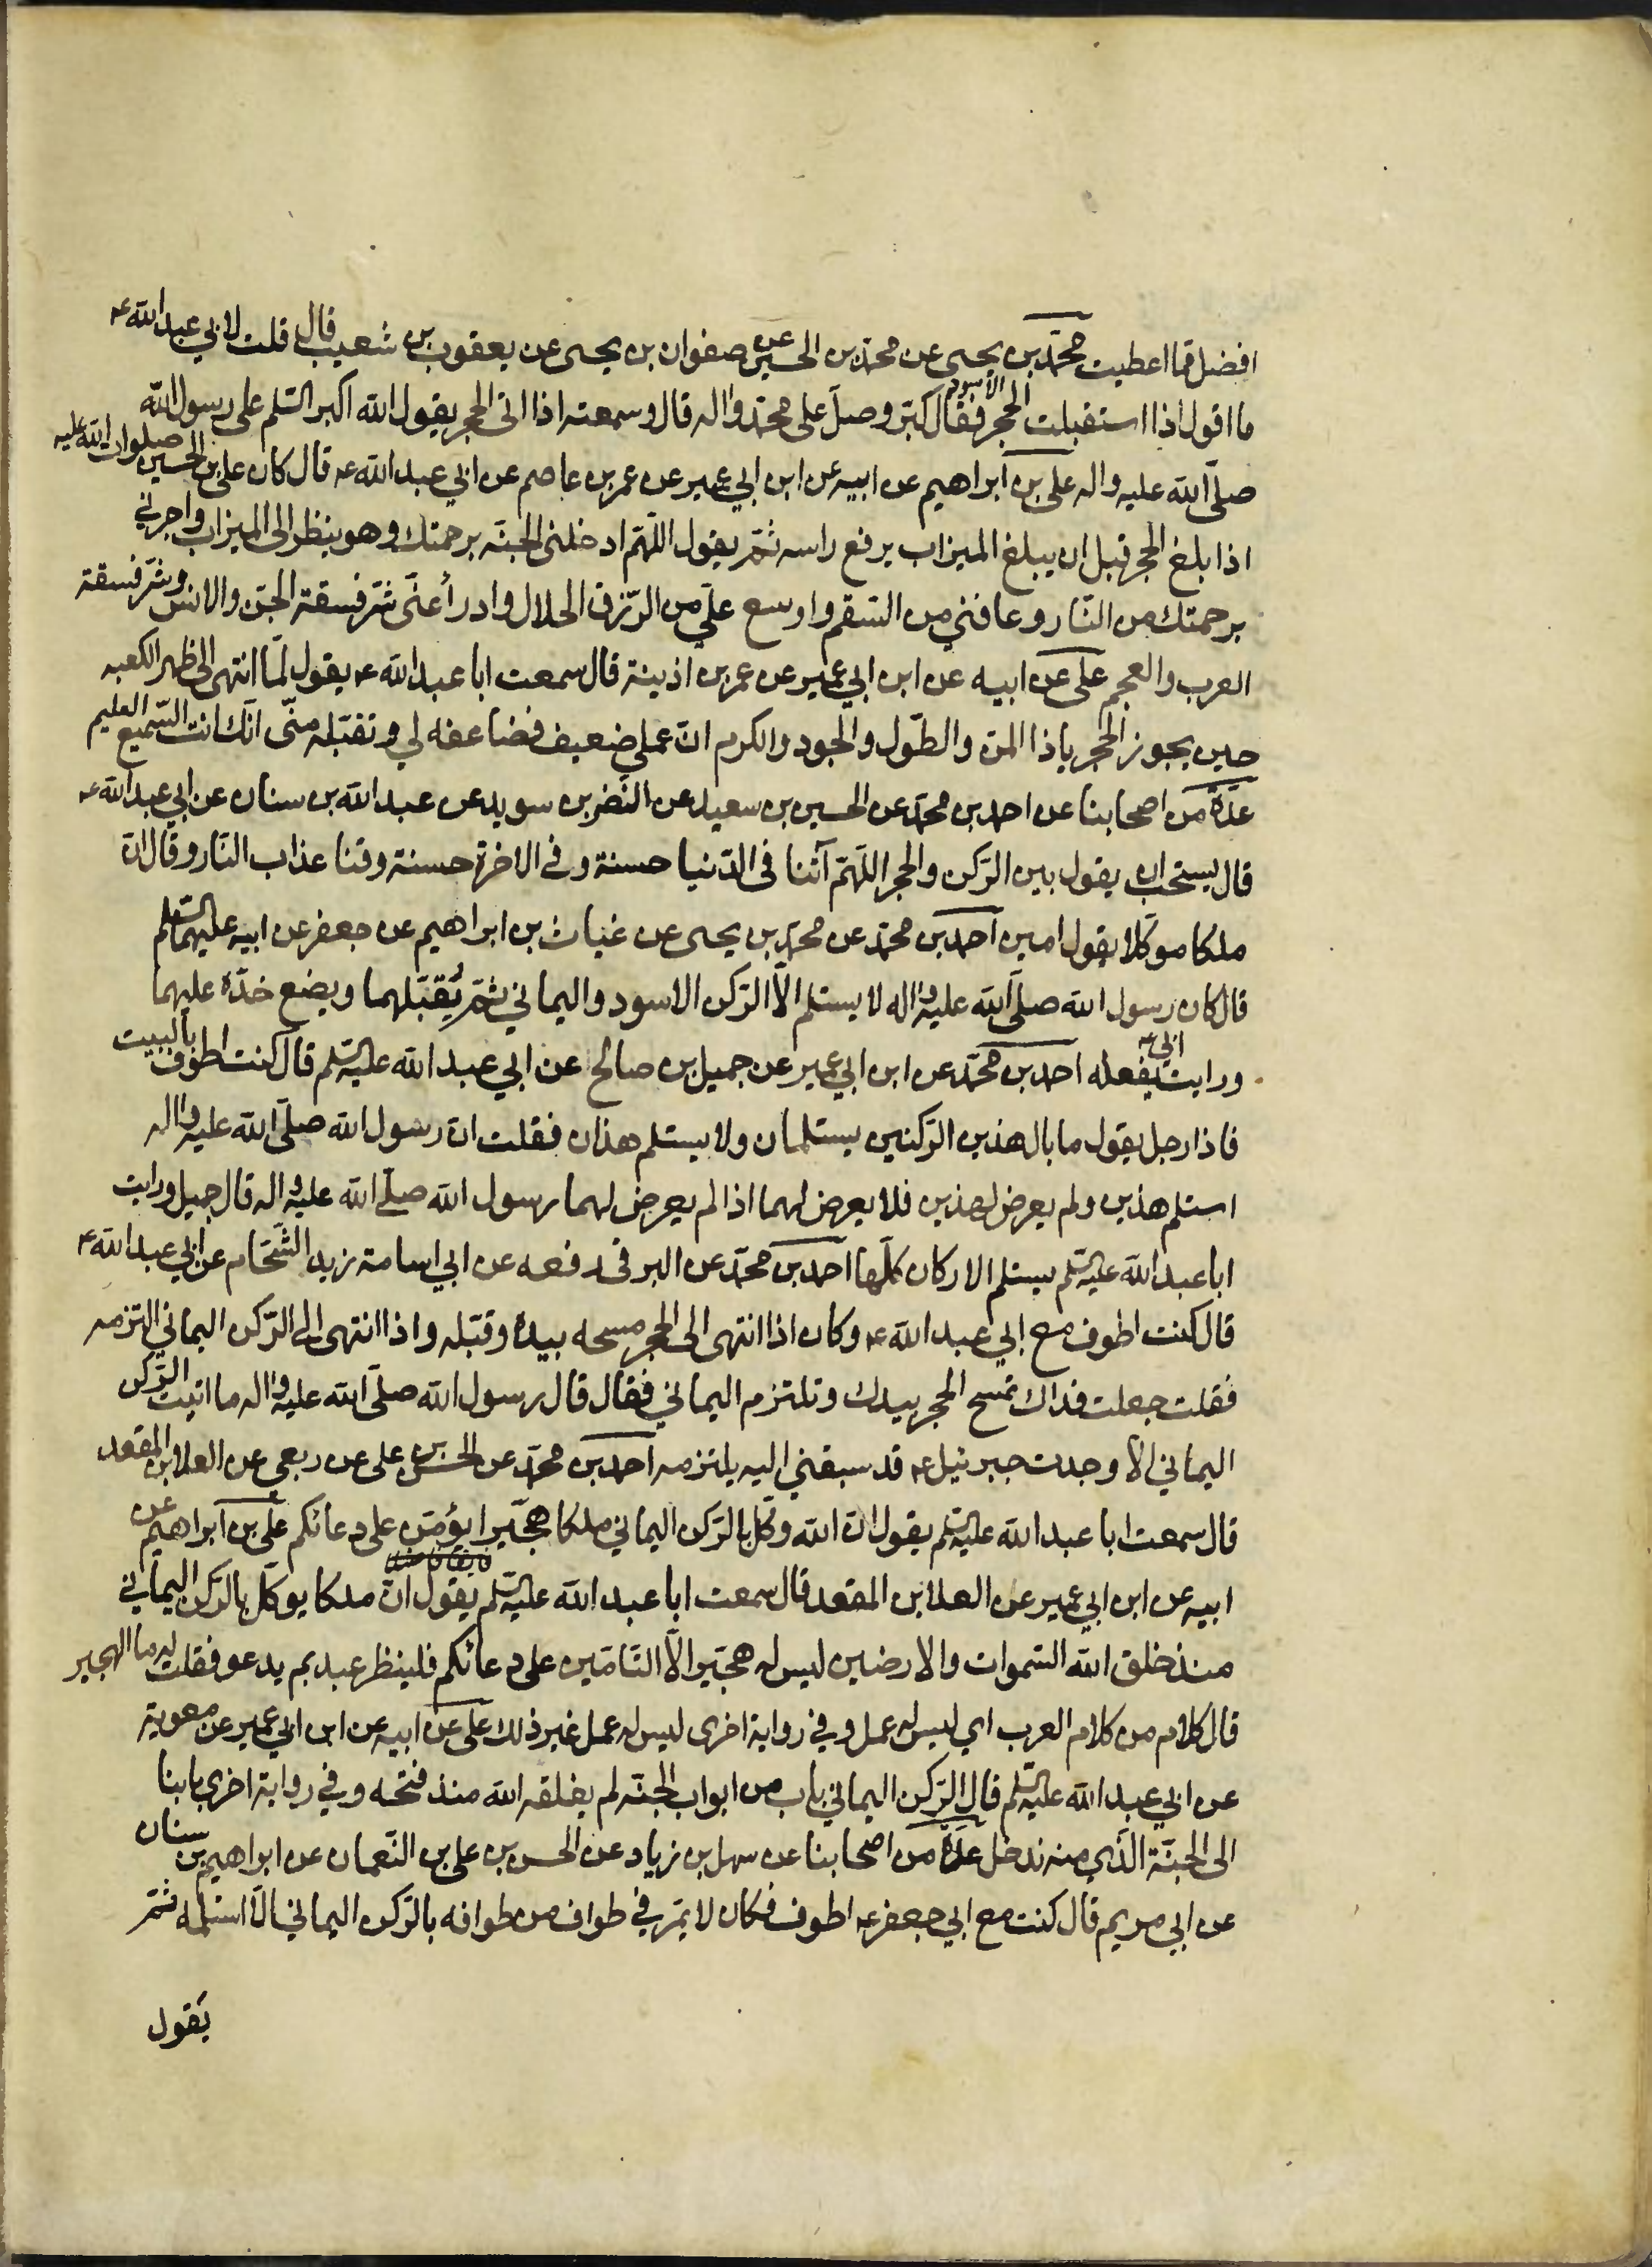 افضل مما اعطيت محمّد بن يحيى عن محمّد بن الحسين عن صفوان بن يحيى عن يعقوب بن شعيب قال قلت لابي عبد الله ع
ما اقول اذا استقبلت الحجر الاسود فقال كبّر وصلّ على محمّد واله قال وسمعته اذا اتى الحجر يقول الله اكبر السّلم على رسول الله
صلّى الله عليه واله علي بن ابراهيم عن ابيه عن ابن ابي عمير عن عمر بن عاصم عن ابي عبد الله ع قال كان علي بن الحسين صلوات الله عليه
اذا بلغ الحجر قبل ان يبلغ الميزاب يرفع راسه ثمّ يقول اللّهمّ ادخلني الجنّه برحمتك وهو ينظر الى الميزاب واجرني
برحمتك من النّار وعافني من السّقم واوسع عليّ من الرّزق الحلال وادرأ عنّى شرّ فسقة الجنّ والانس وشرّ فسقة
العرب والعجم على عن ابيه عن ابن ابي عمير عن عمر بن اذينة قال سمعت ابا عبد الله ع يقول لمّا انتهى الى ظهر الكعبه
حين يجوز الحجر ياذا المنّ والطّول والجود والكرم انّ عملي ضعيف فضاعفه لي وتقبّله منّى انّك انت السّميع العليم
عدّة من اصحابنا عن احمد بن محمّد عن الحسين بن سعيد عن النّضر بن سويد عن عبد الله بن سنان عن ابي عبد الله ع
قال يستحبّ ان يقول بين الرّكن والحجر اللّهمّ آتنا فى الدّنيا حسنة وفي الاخرة حسنة وقنا عذاب النّار وقال انّ
ملكا موكّلا يقول امين احمد بن محمّد عن محمّد بن يحيى عن غياث بن ابراهيم عن جعفر عن ابيه عليهما السّلم
قال كان رسول الله صلّى الله عليه واله لا يستلم الّا الرّكن الاسود واليماني ثمّ يُقبّلهما ويضع خدّه عليهما
ورايت ابي ع يفعله احمد بن محمّد عن ابن ابي عمير عن جميل بن صالح عن ابي عبد الله عليه السّلم قال كنت اطوف بالبيت
فاذا رجل يقول ما بال هذين الرّكنين يستلمان ولا يستلم هذان فقلت انّ رسول الله صلّى الله عليه واله
استلم هذين ولم يعرض لهذين فلا يعرض لهما اذا لم يعرض لهما رسول الله صلّى الله عليه واله قال جميل ورايت
ابا عبد الله عليه السّلم يستلم الاركان كلّها احمد بن محمّد عن البرقى رفعه عن ابي اسامة زيد الشّحّام عن ابي عبد الله ع
قال كنت اطوف مع ابي عبد الله ع وكان اذا انتهى الى الحجر مسحه بيده وقبّله واذا انتهى الى الرّكن اليماني التزمه
فقلت جعلت فداك تمسح الحجر بيدك وتلتزم اليماني فقال قال رسول الله صلّى الله عليه واله ما اتيت الرّكن
اليماني الّا وجدت جبرئيل ع قد سبقني اليه يلتزمه احمد بن محمّد عن الحسن بن على عن ربعي عن العلا بن المقعد
قال سمعت ابا عبد الله عليه السّلم يقول انّ الله وكّل بالرّكن اليماني ملكا هجّيرا يؤمّن على دعائكم علي بن ابراهيم عن
ابيه عن ابن ابي عمير عن العلا بن المقعد قال سمعت ابا عبد الله عليه السّلم يقول انّ ملكا يوكّل بالرّكن اليماني
منذ خلق الله السّموات والارضين ليس له هجّير الّا التّامّين على دعائكم فلينظر عبد بم يدعو فقلت له ما الهجير
قال كلام من كلام العرب اي ليس له عمل وفي رواية اخرى ليس له عمل غير ذلك على عن ابيه عن ابن ابي عمير عن معوية
عن ابي عبد الله عليه السّلم قال الرّكن اليماني باب من ابواب الجنّه لم يغلقه الله منذ فتحه وفي رواية اخرى بابنا
الى الجنّة الّذي منه ندخل عدّة من اصحابنا عن سهل بن زياد عن الحسن بن علي بن النّعمان عن ابراهيم بن سنان
عن ابي مريم قال كنت مع ابي جعفر ع اطوف فكان لا يمرّ في طواف من طوافه بالرّكن اليماني الّا استلمه ثمّ
يقول